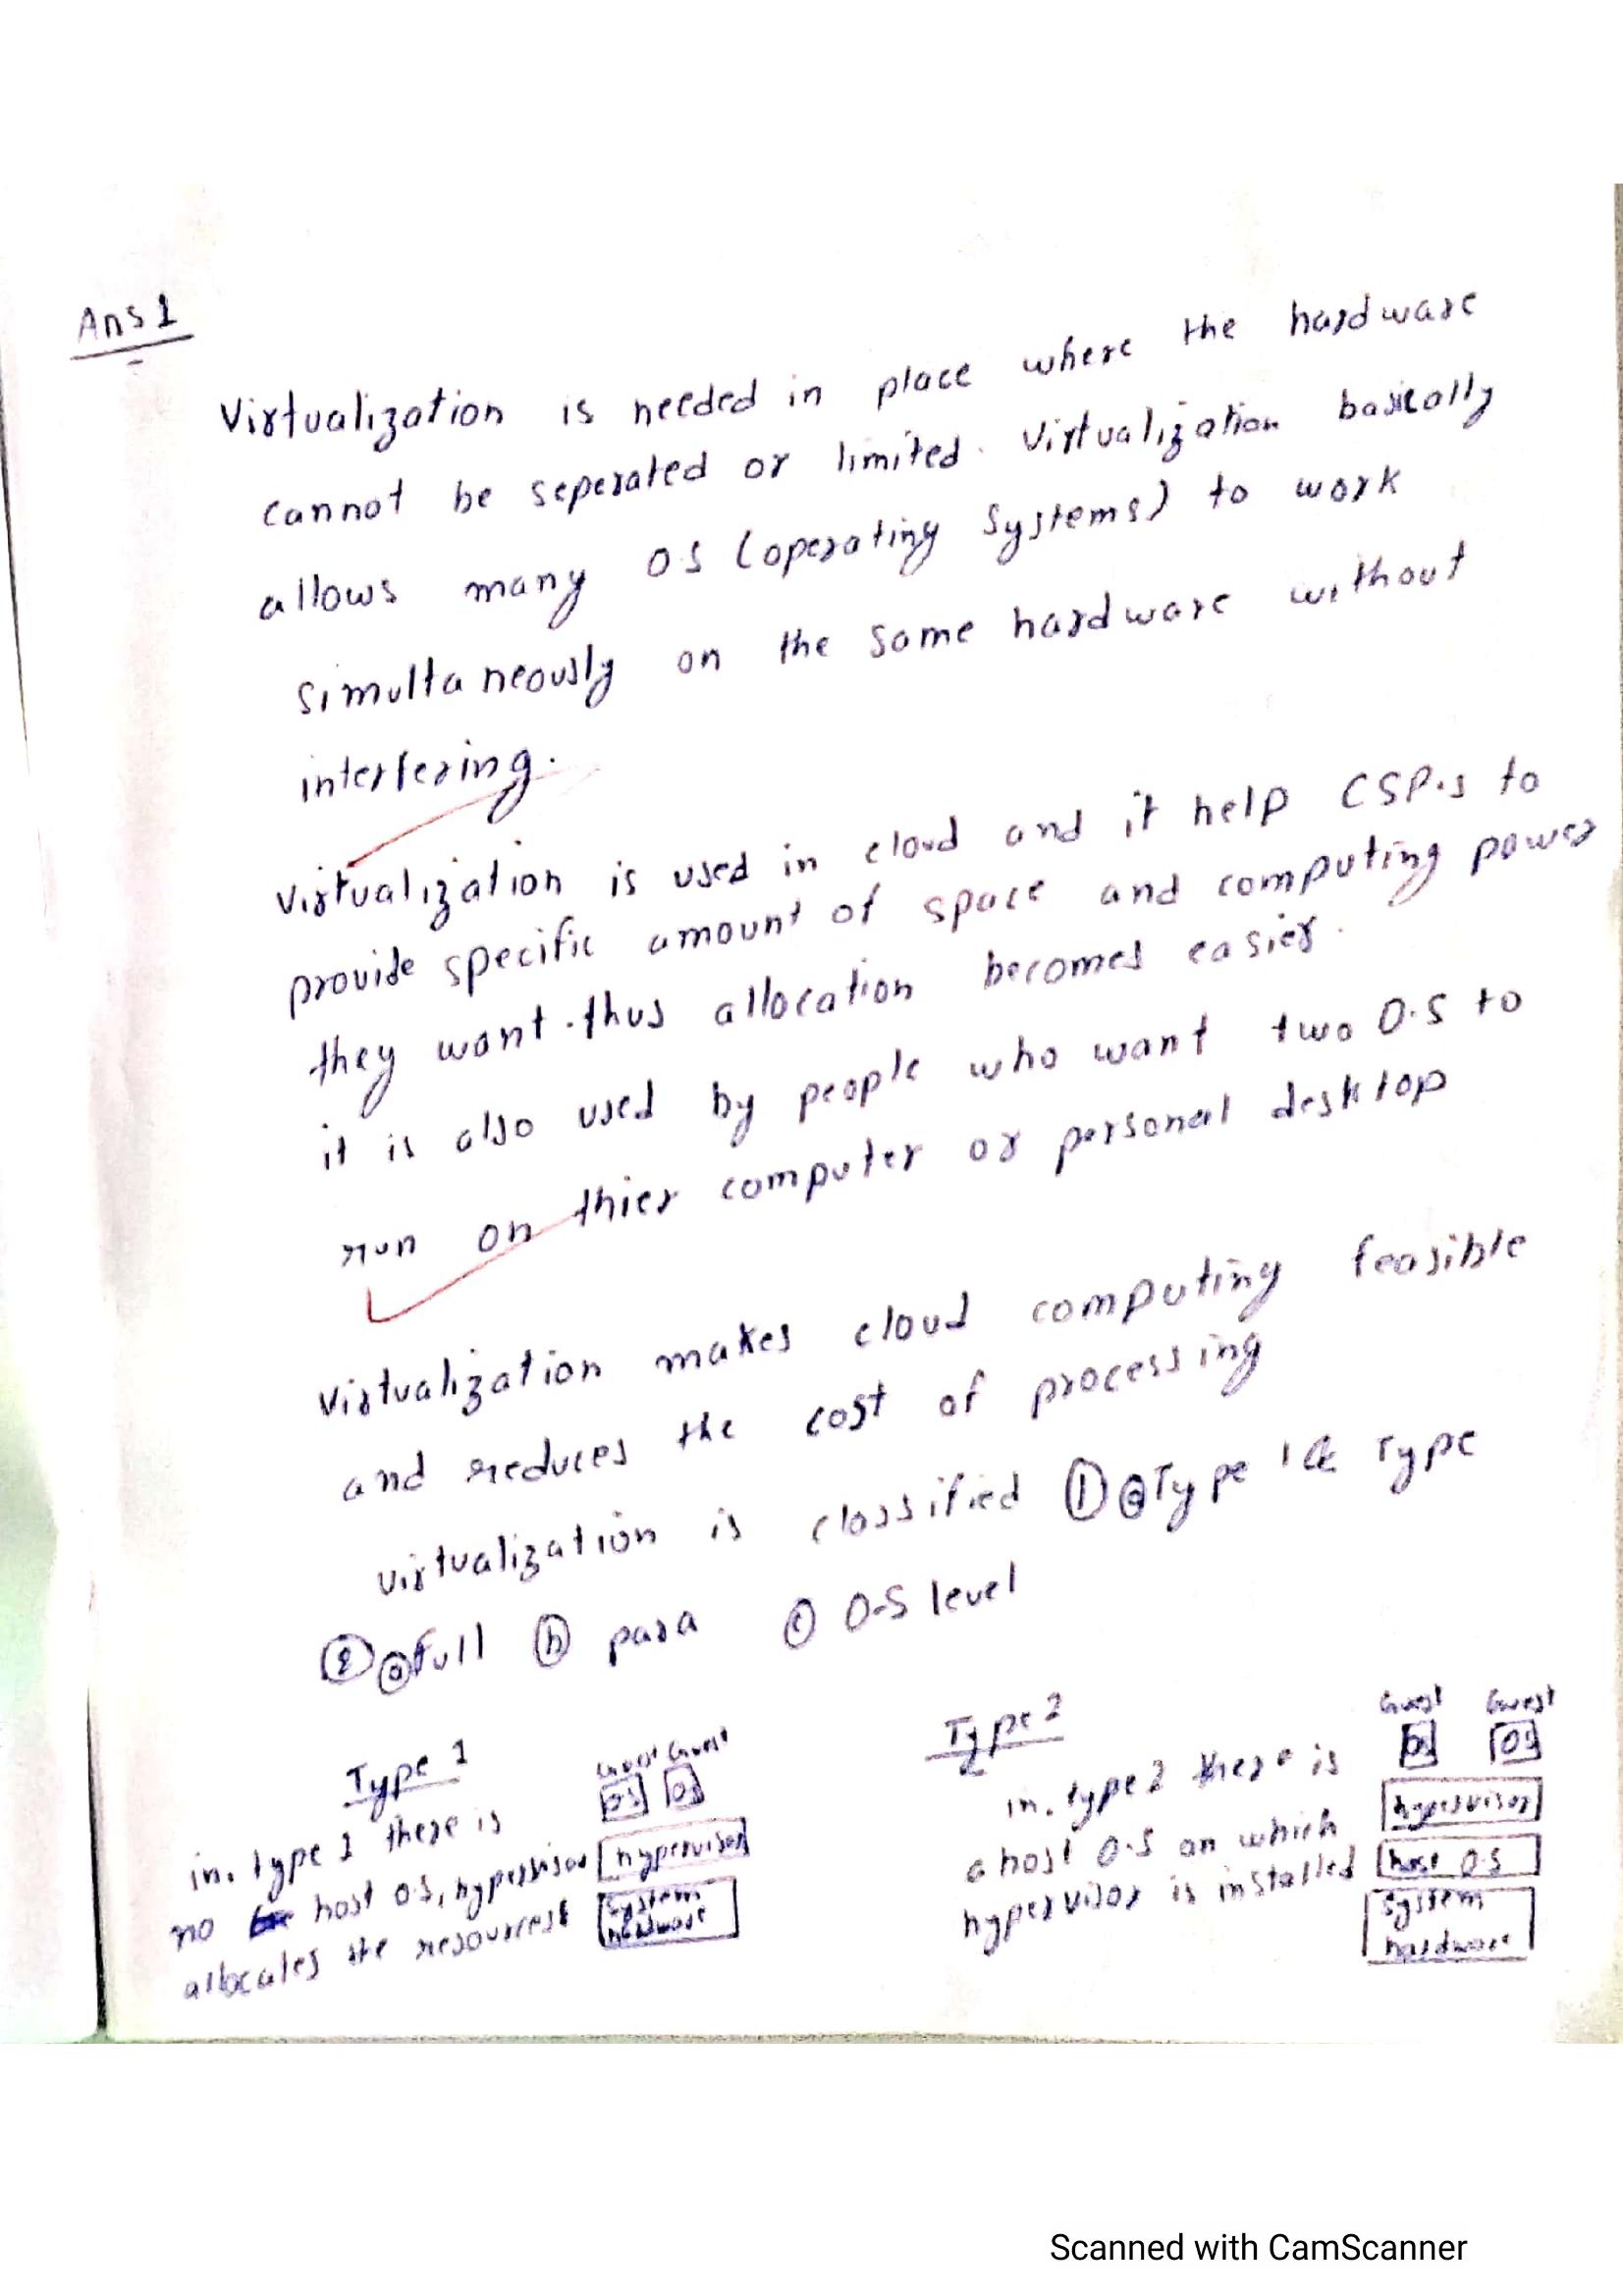 Ans 1
Virtualization is needed in place where the hardware
cannot be seperated or limited. Virtualization basically
allows many O.S (operating systems) to work
simultaneously on the same hardware without
interfering.
virtualization is used in cloud and it help CSP.s to
provide specific amount of space and computing power
they want. thus allocation becomes easier.
it is also used by people who want two O.S to
run on thier computer or personal desktop
virtualization makes cloud computing feasible
and reduces the cost of processing
virtualization is classified ① ⓐ Type 1 & Type
② ⓐ full ⓑ para ⓒ O.S level
Type 1
in. type 1 there is
no host O.S, hypervisor
allocates the resources
Guest Guest
OS OS
hypervisor
system
hardware
Type 2
in. type 2 there is
a host O.S on which
hypervisor is installed
Guest Guest
OS OS
hypervisor
host O.S
system
hardware
Scanned with CamScanner